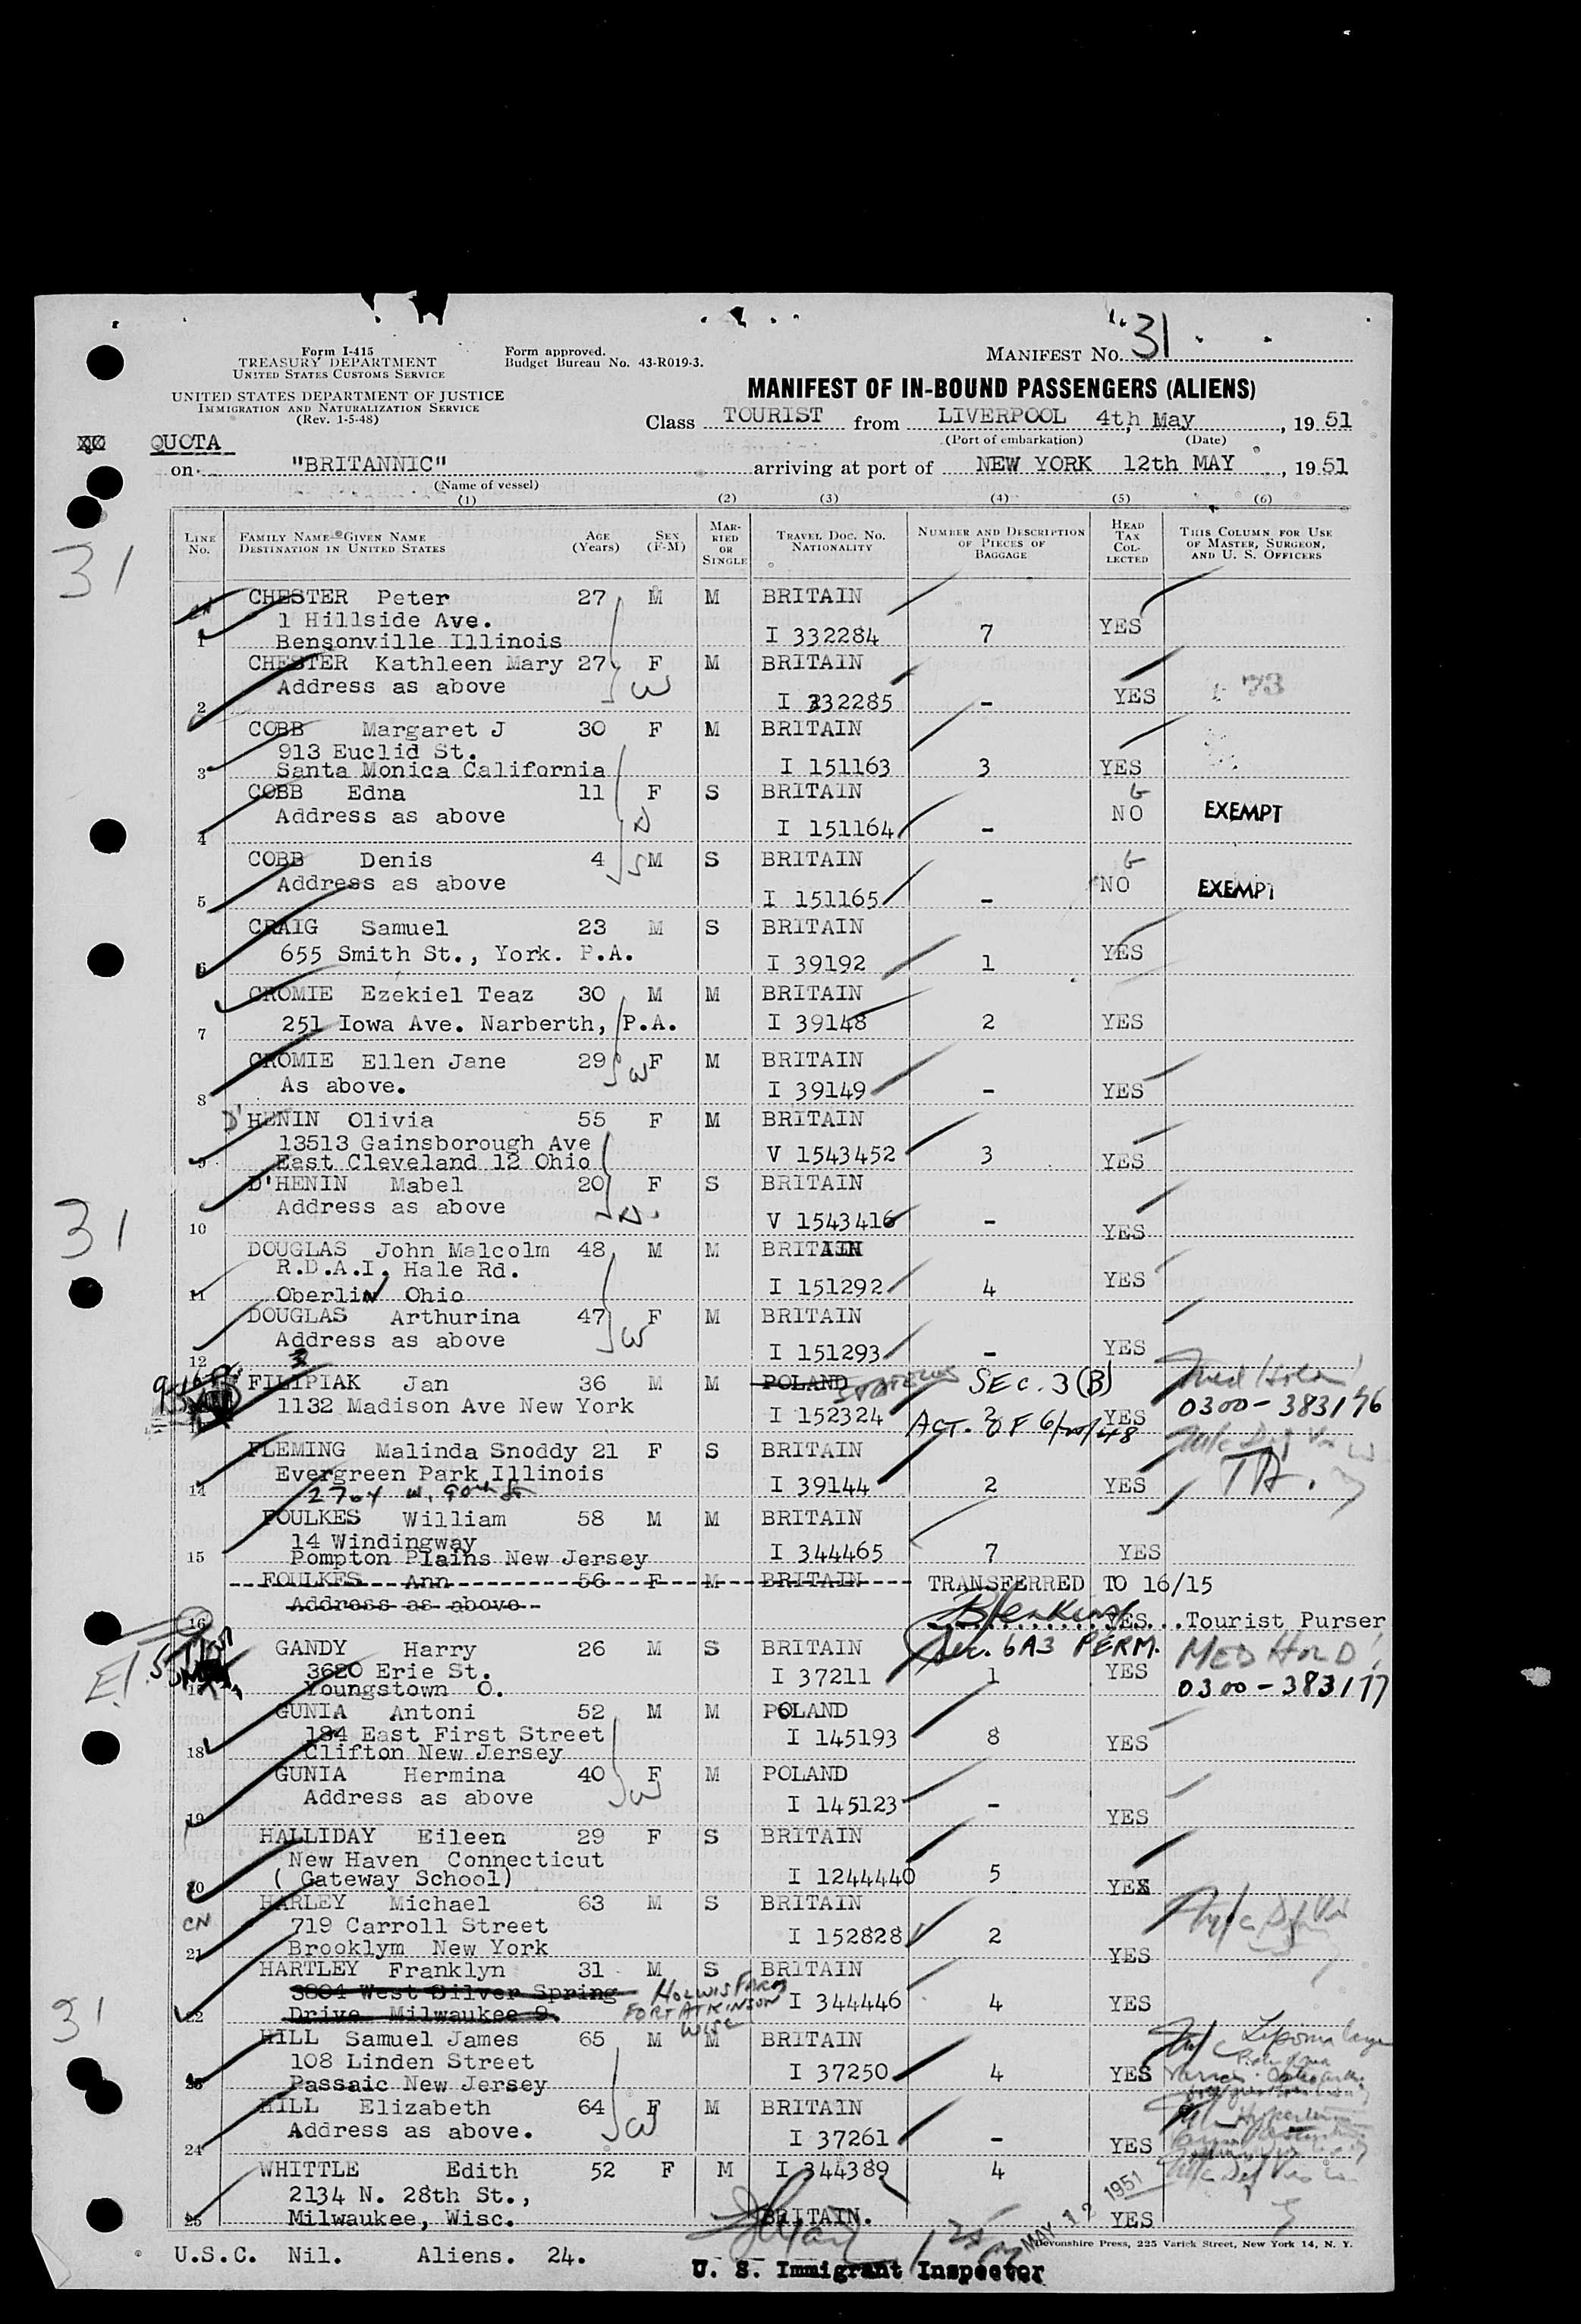 31
Form I-415
TREASURY DEPARTMENT
UNITED STATES CUSTOMS SERVICE
UNITED STATES DEPARTMENT OF JUSTICE
IMMIGRATION AND NATURALIZATION SERVICE
(Rev. 1-5-48)
Form approved.
Budget Bureau No. 43-R019-3.
MANIFEST No. 31
MANIFEST OF IN-BOUND PASSENGERS (ALIENS)
Class TOURIST from LIVERPOOL 4th May, 1951
(Port of embarkation) (Date)
QUOTA
on "BRITANNIC" arriving at port of NEW YORK 12th MAY, 1951
(Name of vessel)
(1) (2) (3) (4) (5) (6)
LINE No. FAMILY NAME—GIVEN NAME DESTINATION IN UNITED STATES AGE (Years) SEX (F-M) MARRIED OR SINGLE TRAVEL DOC. No. NATIONALITY NUMBER AND DESCRIPTION OF PIECES OF BAGGAGE HEAD TAX COLLECTED THIS COLUMN FOR USE OF MASTER, SURGEON, AND U. S. OFFICERS
31
CHESTER Peter 27 M M BRITAIN
1 Hillside Ave. YES
1 Bensonville Illinois I 332284 7
CHESTER Kathleen Mary 27 F M BRITAIN
Address as above W 73
2 I 332285 - YES
COBB Margaret J 30 F M BRITAIN
913 Euclid St.
3 Santa Monica California I 151163 3 YES
COBB Edna 11 F S BRITAIN
Address as above NO EXEMPT
4 D I 151164 -
COBB Denis 4 S M S BRITAIN
Address as above NO EXEMPT
5 I 151165 -
CRAIG Samuel 23 M S BRITAIN
655 Smith St., York. P.A. YES
6 I 39192 1
CROMIE Ezekiel Teaz 30 M M BRITAIN
7 251 Iowa Ave. Narberth, P.A. I 39148 2 YES
CROMIE Ellen Jane 29 W F M BRITAIN
8 As above. I 39149 - YES
D'HENIN Olivia 55 F M BRITAIN
13513 Gainsborough Ave V 1543452 3
9 East Cleveland 12 Ohio YES
D'HENIN Mabel 20 F S BRITAIN
Address as above D.
31
10 V 1543416 - YES
DOUGLAS John Malcolm 48 M M BRITAIN
R.D.A.I. Hale Rd. YES
11 Oberlin Ohio I 151292 4
DOUGLAS Arthurina 47 F M BRITAIN
Address as above W YES
12 I 151293 -
FILIPIAK Jan 36 M M POLAND STATELESS SEC. 3 (B) Med Hold
1132 Madison Ave New York I 152324 2 YES 0300-383176
ACT. OF 6/25/48
FLEMING Malinda Snoddy 21 F S BRITAIN
Evergreen Park Illinois
14 2704 W. 90th St I 39144 2 YES
FOULKES William 58 M M BRITAIN
14 Windingway
15 Pompton Plains New Jersey I 344465 7 YES
FOULKES Ann 56 F M BRITAIN TRANSFERRED TO 16/15
Address as above
16 YES...Tourist Purser
GANDY Harry 26 M S BRITAIN Sec. 6A3 PERM. MED HOLD!
3620 Erie St. I 37211 1 YES
Youngstown O. 0300-383177
GUNIA Antoni 52 M M POLAND
184 East First Street I 145193 8
18 Clifton New Jersey YES
GUNIA Hermina 40 F M POLAND
Address as above W I 145123 -
19 YES
HALLIDAY Eileen 29 F S BRITAIN
New Haven Connecticut
20 ( Gateway School) I 1244440 5 YES
HARLEY Michael 63 M S BRITAIN
CN 719 Carroll Street I 152828 2
21 Brooklym New York YES
HARTLEY Franklyn 31 M S BRITAIN
3804 West Silver Spring HOLWIS FARM
22 Drive Milwaukee 9. FORT ATKINSON WISC I 344446 4 YES
31
HILL Samuel James 65 M M BRITAIN
108 Linden Street I 37250 4 YES
23 Passaic New Jersey
HILL Elizabeth 64 F M BRITAIN
Address as above. W I 37261 -
24 YES
WHITTLE Edith 52 F M I 344389 4
2134 N. 28th St.,
25 Milwaukee, Wisc. BRITAIN. YES
MAY 12 1951
Devonshire Press, 225 Varick Street, New York 14, N. Y.
U.S.C. Nil. Aliens. 24.
U. S. Immigrant Inspector